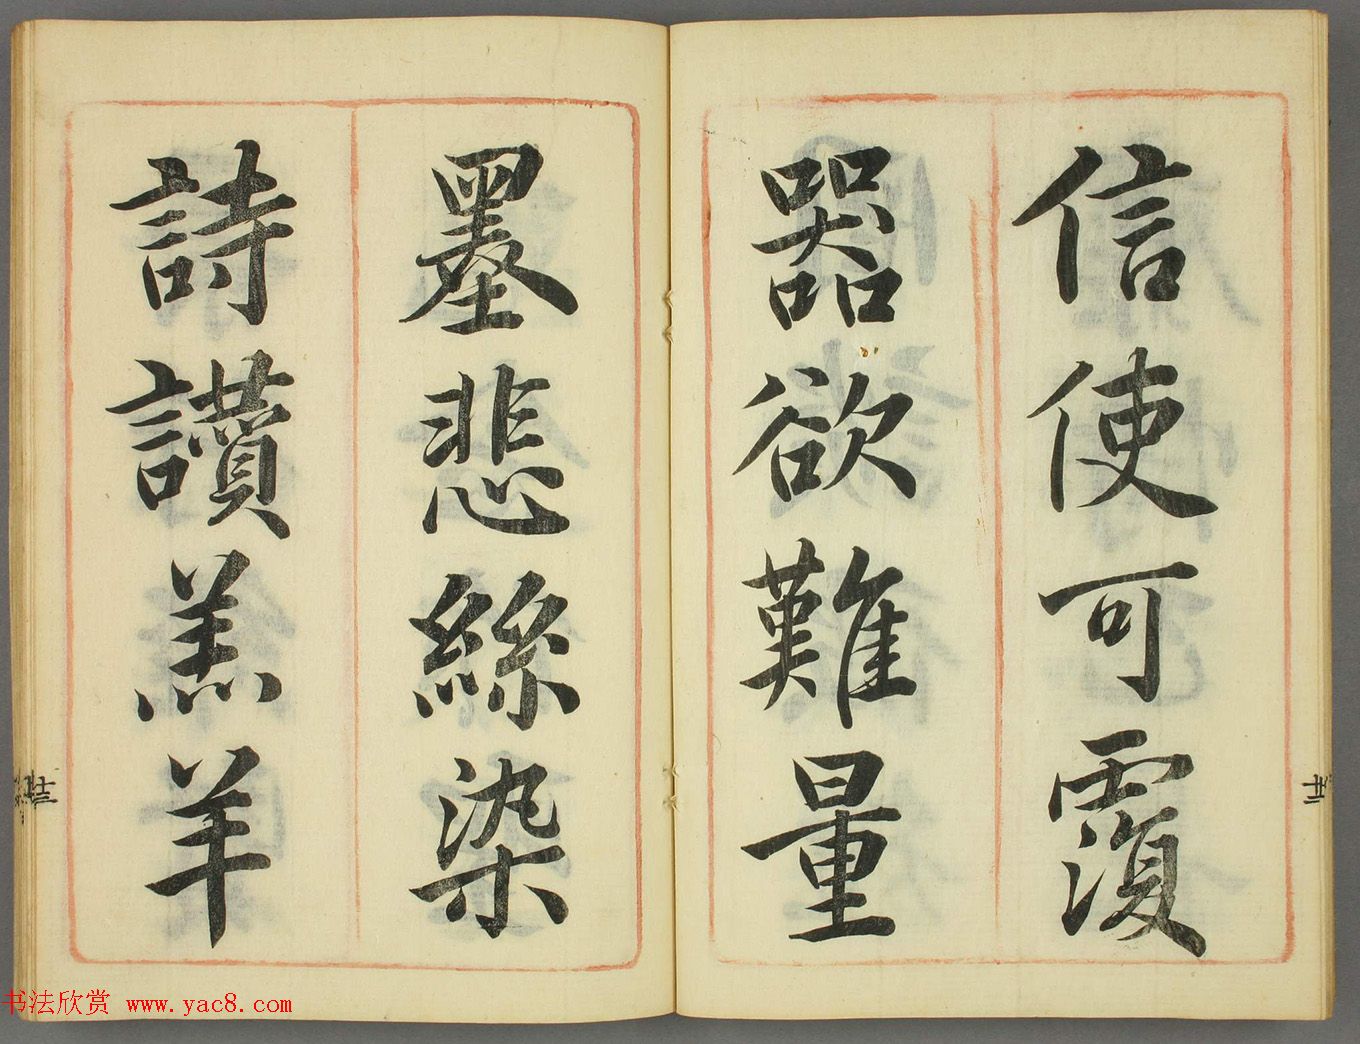 信使可覆
器欲難量
墨悲絲染
詩讚羔羊
廿二
廿三
书法欣赏 www.yac8.com